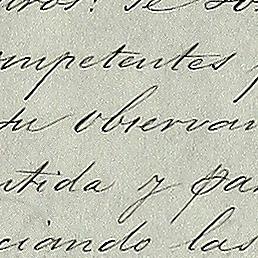 ompetentes
su observan
ntida y par
ciando las